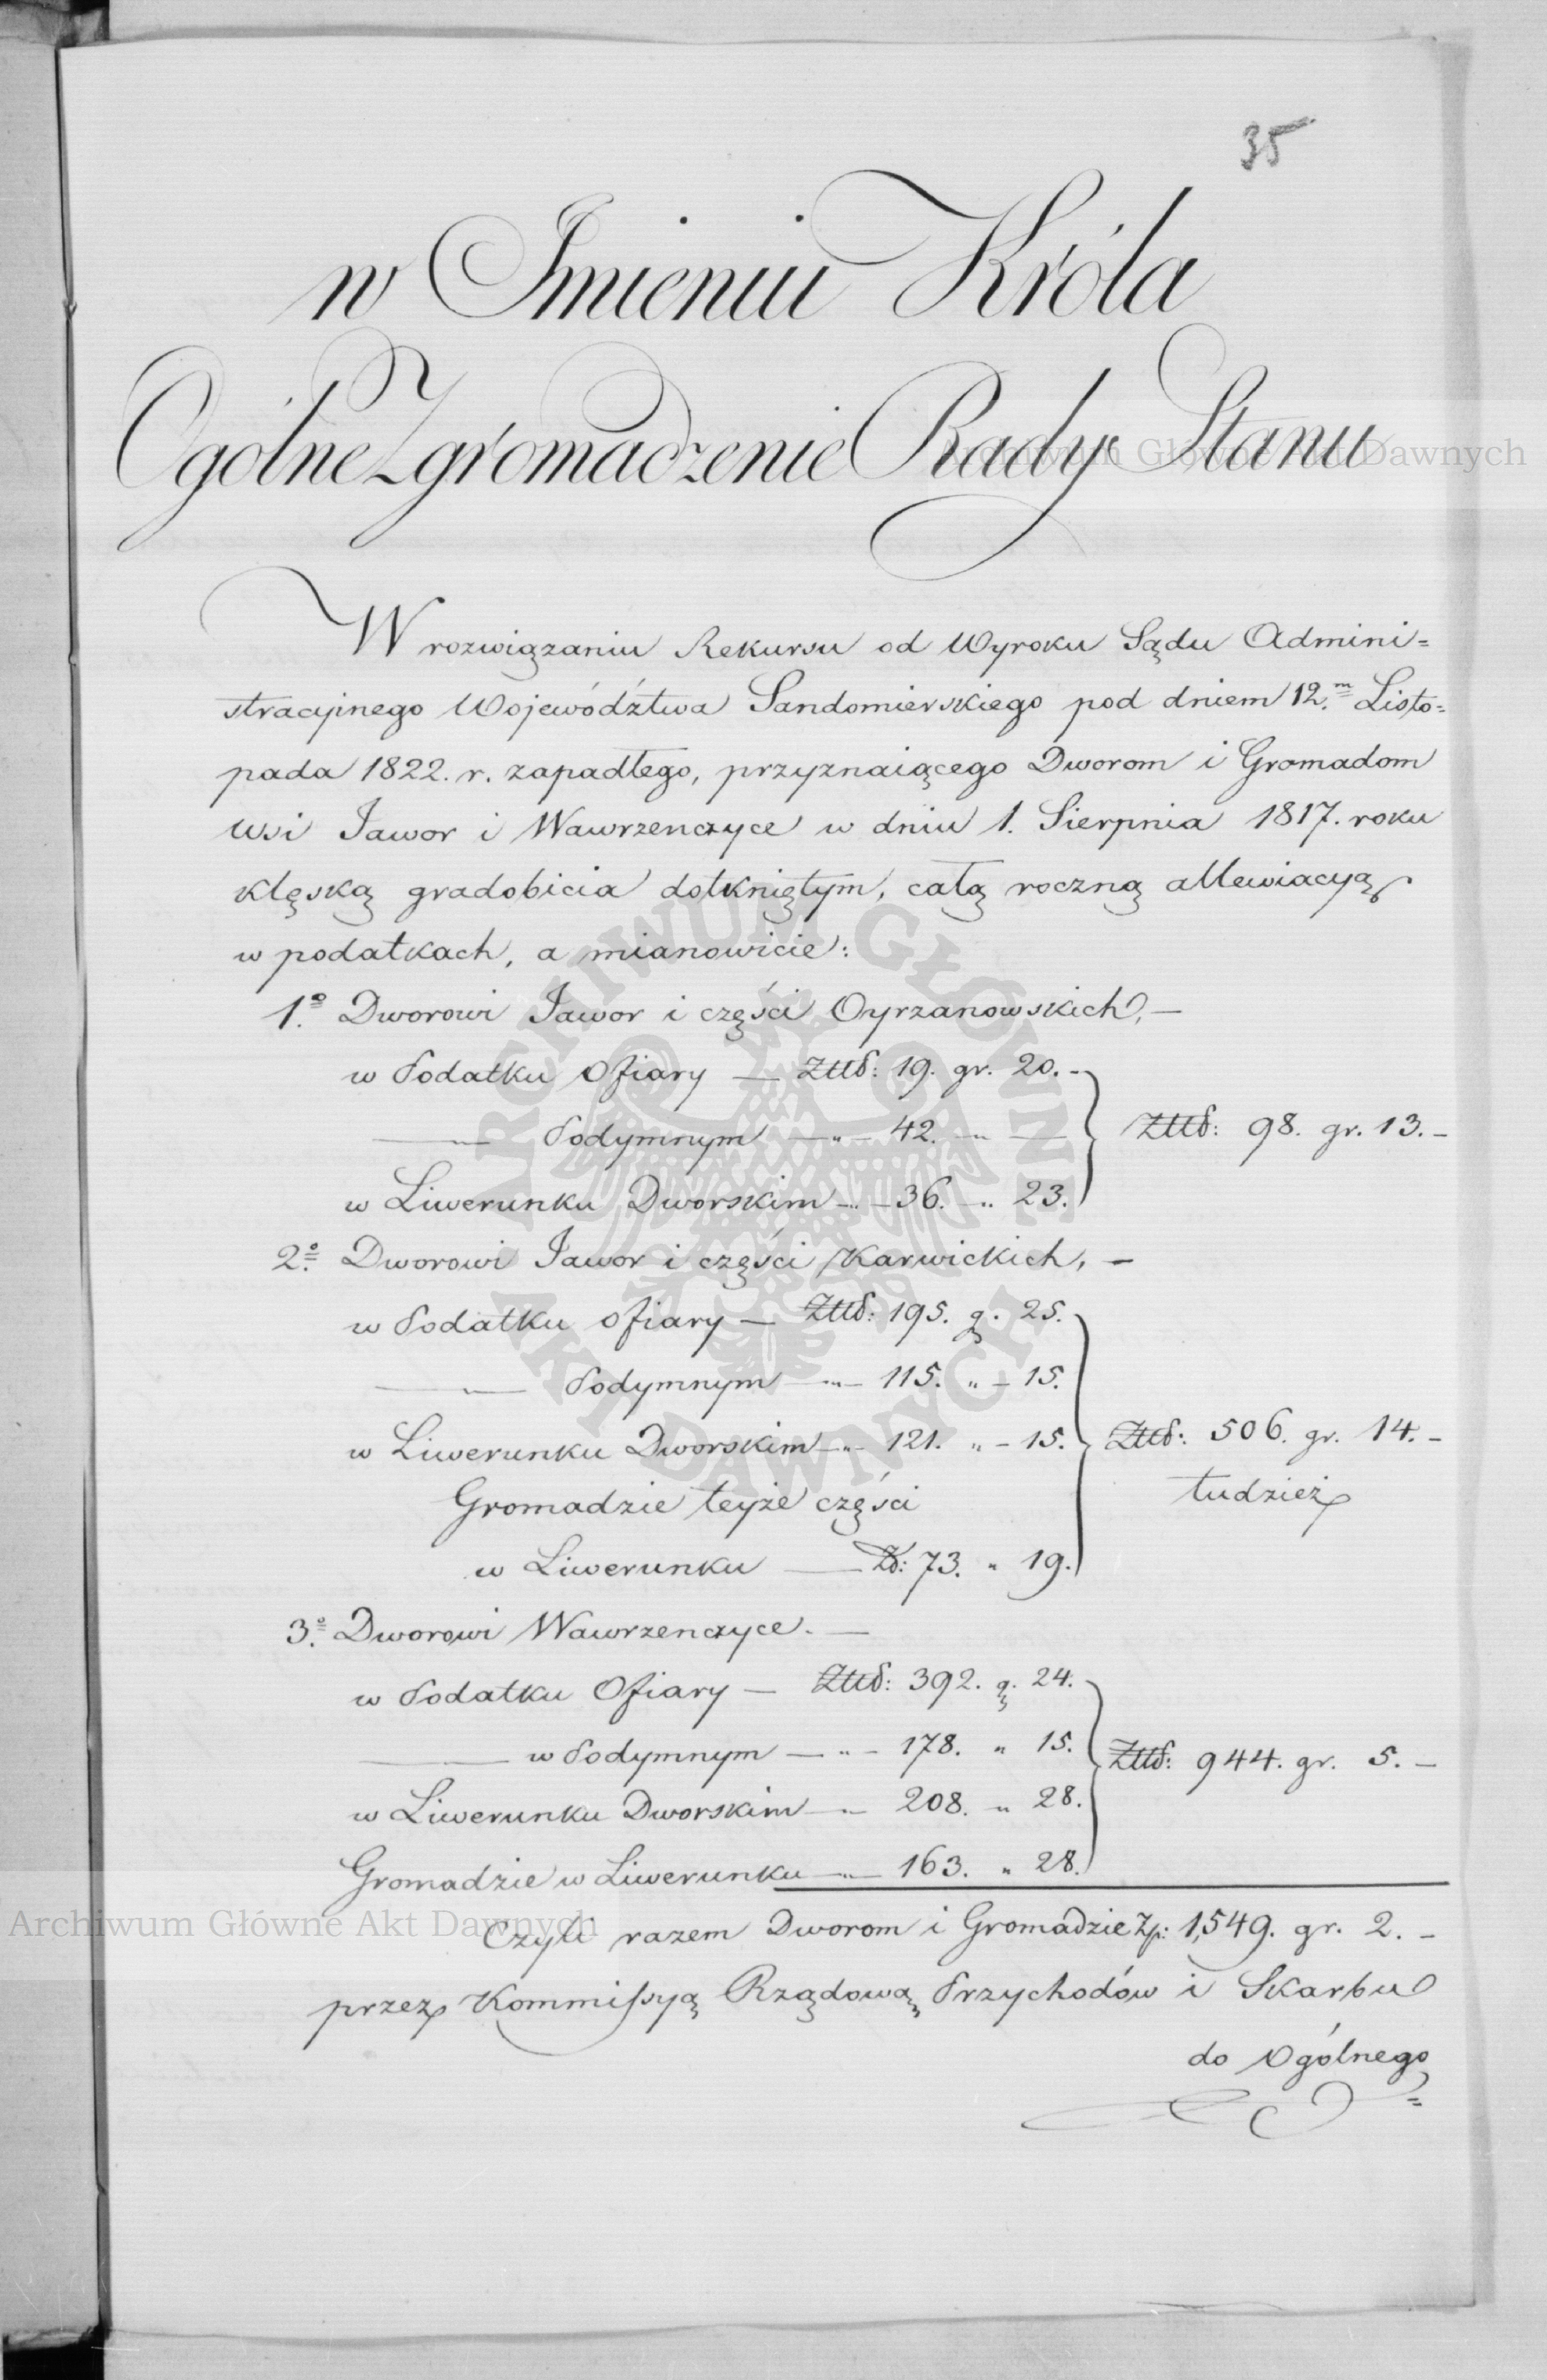 35
w Imieniu Króla
Ogólne Zgromadzenie Rady Stanu
W rozwiązaniu Rekursu od Wyroku Sądu Admini=
stracyinego Województwa Sandomierskiego pod dniem 12.m Listo=
pada 1822. r. zapadłego, przyznaiącego Dworom i Gromadom
Wsi Jawor i Wawrzenczyce w dniu 1. Sierpnia 1817. roku
klęską gradobicia dotkniętym, całą roczną allewiacyą
w podatkach, a mianowicie:
1.o Dworowi Jawor i części Oyrzanowskich, —
w Podatku Ofiary — Złłp: 19. gr. 20. -
— " — Podymnym — " — 42. — " —
Złłp: 98. gr. 13. -
w Liwerunku Dworskim — " — 36. — " 23.
2.o Dworowi Jawor i części Karwickich, —
w Podatku ofiary — Złłp: 195. g. 25.
— " — Podymnym — " — 115. " — 15.
w Liwerunku Dworskim — " — 121. " — 15.
Złłp: 506. gr. 14. -
Gromadzie teyże części
tudzież
w Liwerunku — Zp: 73. " 19.
3.o Dworowi Wawrzenczyce. —
w Podatku Ofiary — Złłp: 392. g. 24.
— w Podymnym — " — 178. " 15.
Złłp: 944. gr. 5. —
w Liwerunku Dworskim — " 208. " 28.
Gromadzie w Liwerunku — " — 163. " 28.
Czyli razem Dworom i Gromadzie Zp: 1,549. gr. 2. -
przez Kommissyą Rządową Przychodów i Skarbu
do Ogólnego
Archiwum Główne Akt Dawnych
ARCHIWUM GŁÓWNE
AKT DAWNYCH
Archiwum Główne Akt Dawnych